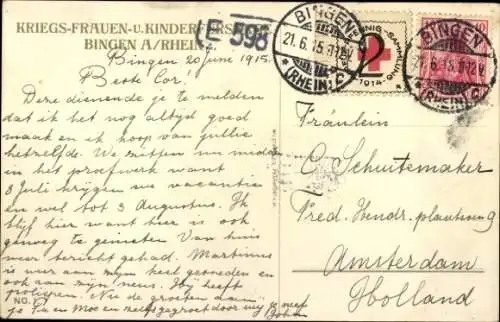 KRIEGS-FRAUEN-U. KINDER
BINGEN A/RHEIN
E 598
BINGEN
21.6.15.
(RHEIN) C
PFENNIG-SAMMLUNG
2
1914
10
BINGEN
21.6.15.
(RHEIN) C
Bingen 20 June 1915.
Beste Cor!
Deze dienende je te melden
dat ik het nog altyd goed
maak en ik hoop van jullie
hetzelfde. We zitten nu midden
in het proefwerk want
3 Juli krijgen we vacantie
en wel tot 3 Augustus. Ik
blijf hier want hier is ook
genoeg te genieten Van huis
weer bericht gehad. Martinus
is weer aan zijn keel geopereerd en
ook aan zijn neus. Hij heeft
poliepen. Nu de groeten aan
je Pa en Moe en gegroet door je neef
Johan
NO.
Fräulein
C. Schuitemaker
Fred. Hendr. plantsoen 9
Amsterdam
Holland